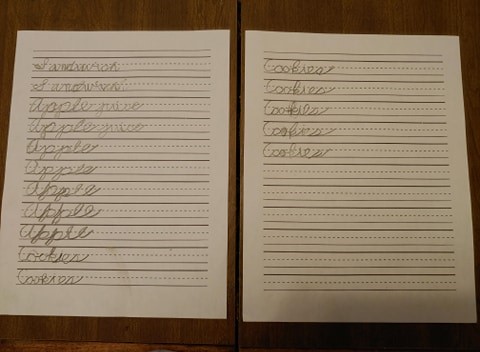 Sandwich
Sandwich
Apple juice
Apple juice
Apple
Apple
Apple
Apple
Apple
Cookies
Cookies
Cookies
Cookies
Cookies
Cookies
Cookies